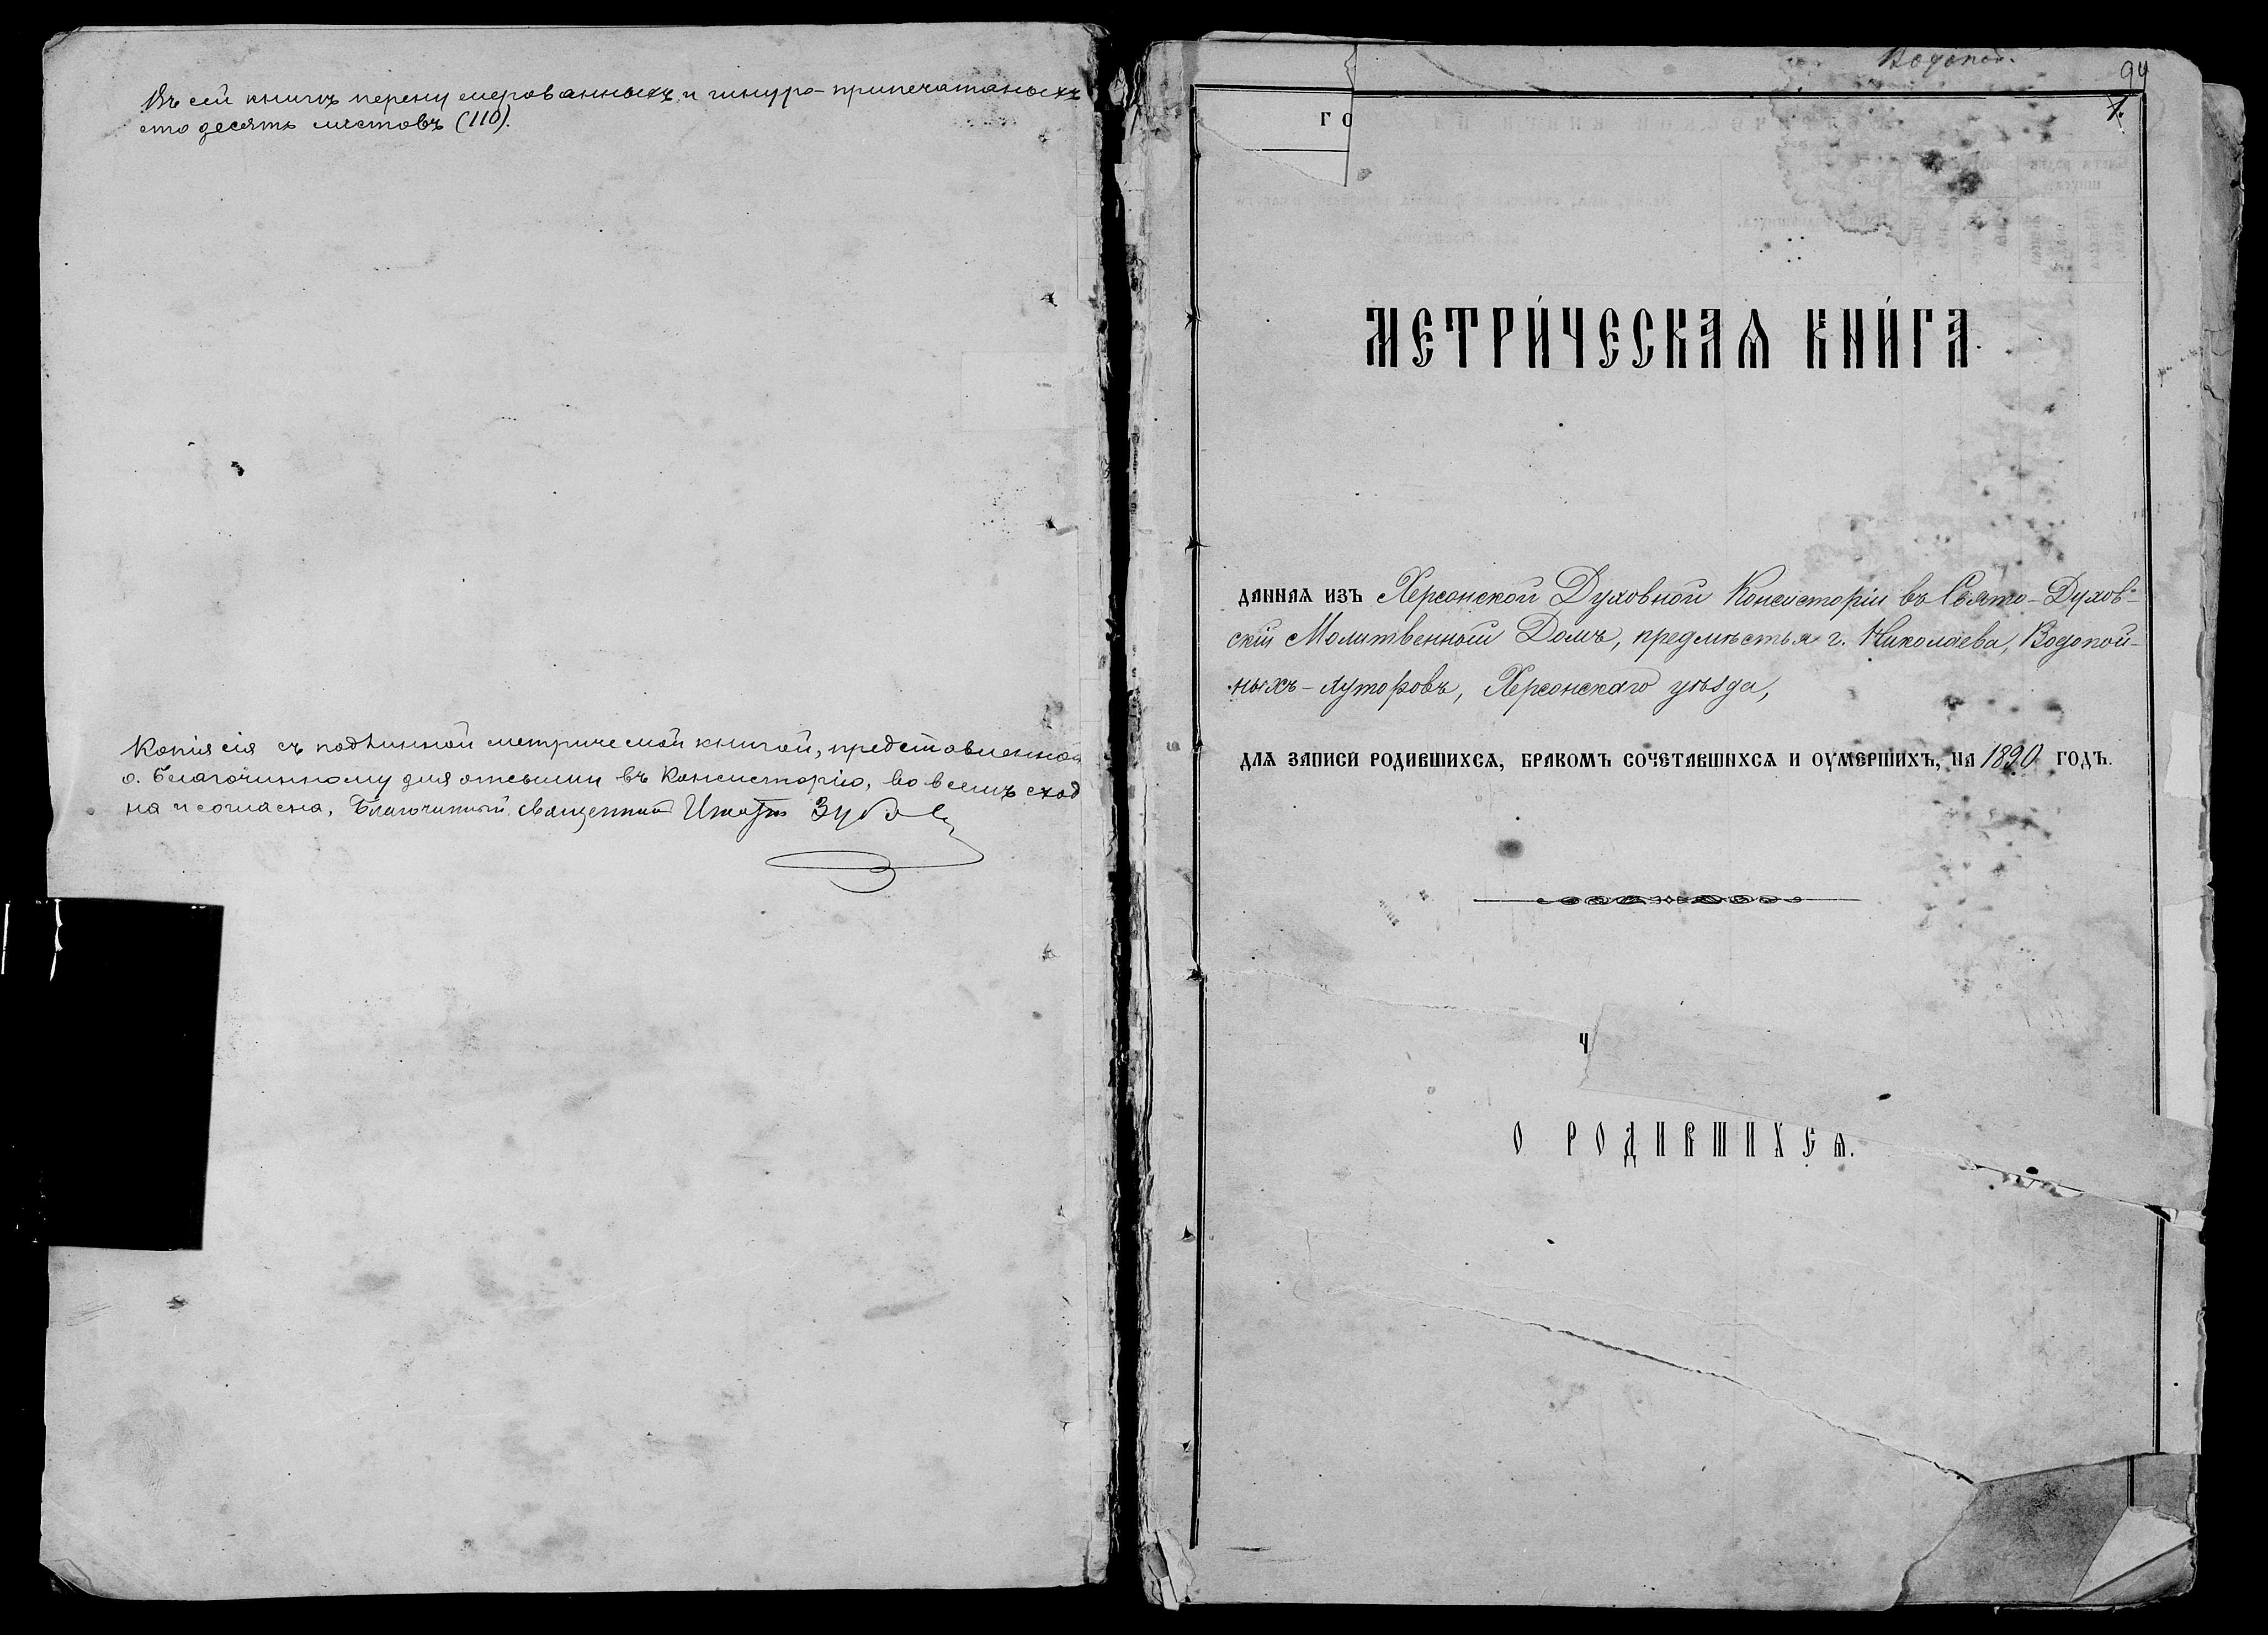 Въ сей книгѣ перенумерованныхъ и шнуро-припечатаныхъ
сто десять листовъ (110).
Копія сія съ подлинной метрической книгой, представленной
о. благочинному для отсылки въ Консисторію, во всемъ сход
на и согласна. Благочинный священникъ
Водопой.
94
1.
ГО
МЕТРИ́ЧЕСКАѦ КНИ́ГА
ДАННАѦ ИЗЪ Херсонской Духовной Консисторіи въ Свято-Духов-
скій Молитвенный Домъ, предмѣстья г. Николаева, Водопой-
ныхъ-хуторовъ, Херсонскаго уѣзда,
ДЛѦ ЗАПИСИ РОДИВШИХСѦ, БРАКОМЪ СОЧЕТАВШИХСѦ И ОУМЕРШИХЪ, НА 1890 ГОДЪ.
Ч
О РОДИВШИХСѦ.